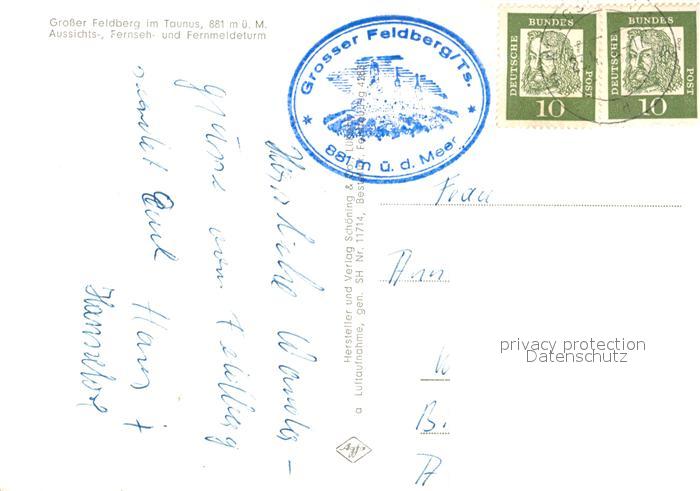 Großer Feldberg im Taunus, 881 m ü. M.
Aussichts-, Fernseh- und Fernmeldeturm
Grosser Feldberg/Ts.
881 m ü. d. Meer
DEUTSCHE BUNDES POST
10
DEUTSCHE BUNDES POST
10
Herzliche Wander-
grüsse vom Feldberg
sendet Euch Hans +
Hannelore
Hersteller und Verlag Schöning &
a Luftaufnahme, gen. SH Nr. 11714, Beste
Frau
B.
privacy protection
Datenschutz